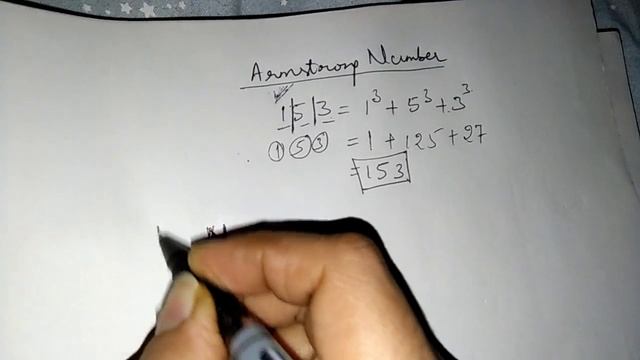 Armstrong Number
1|5|3 = 1³ + 5³ + 3³
1 5 3 = 1 + 125 + 27
= 153